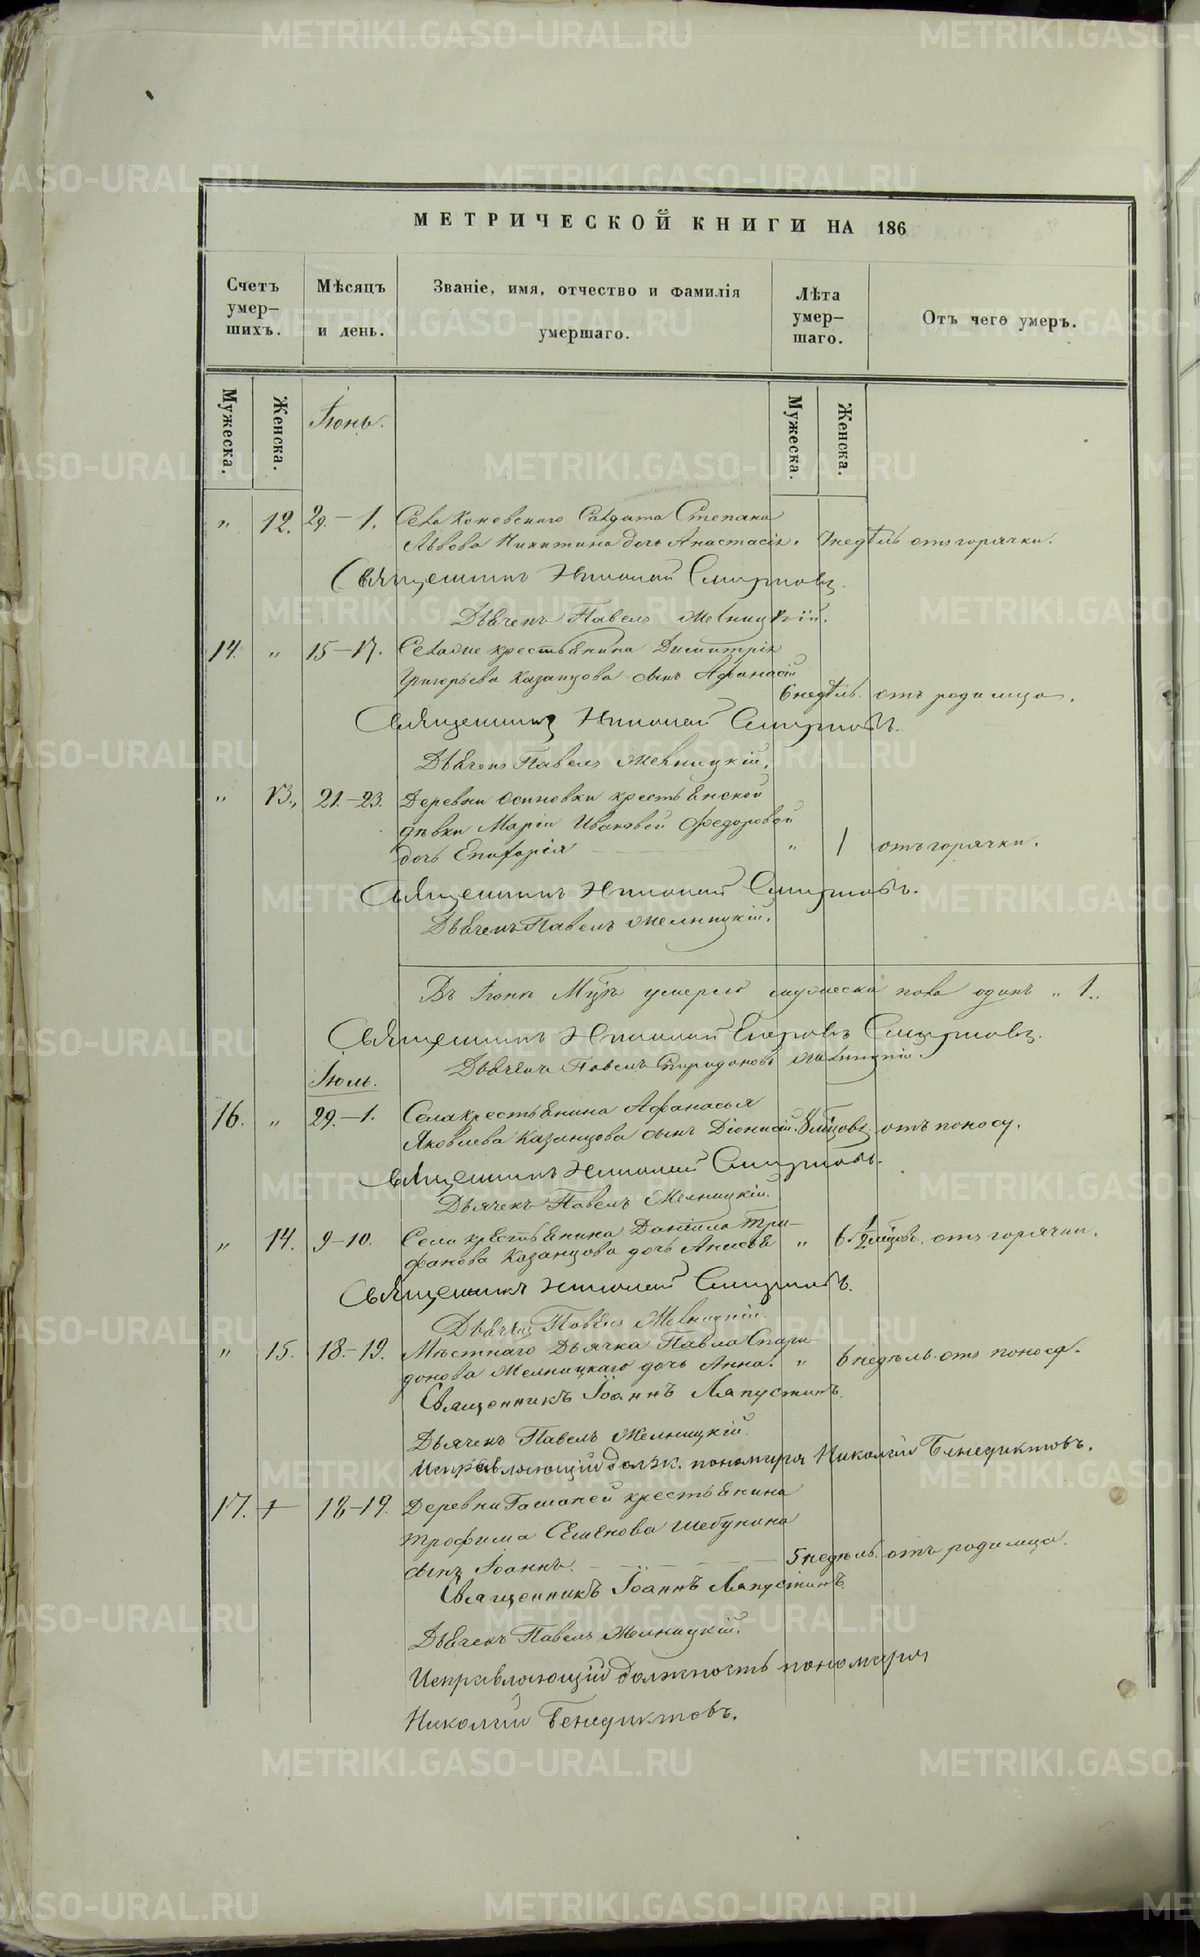 МЕТРИЧЕСКОЙ КНИГИ НА 186
Счетъ умер-шихъ.
Мѣсяцъ и день.
Званіе, имя, отчество и фамилія умершаго.
Лѣта умер-шаго.
Отъ чего умеръ.
Мужеска.
Женска.
Мужеска.
Женска.
Іюнь.
" 12. 29.–1. Села Коневскаго Солдата Степана
Львова Никитина дочь Анастасія. недѣль отъ горячки.
Священникъ Николай Смирновъ.
Дьячекъ Павелъ Мелницкій.
14. " 15–17. крестьянина Димитрія
Григорьева Казанцова сынъ Афанасій
6 недѣль. отъ родимца.
Священникъ Николай Смирновъ.
Дьячекъ Павелъ Мелницкій.
" 13., 21.–23. Деревни Осиновки крестьянской
дѣвки Маріи Ивановой Федоровой
дочь " 1 отъ горячки.
Священникъ Николай Смирновъ.
Дьячекъ Павелъ Мелницкій.
Въ умерло мужеска пола одинъ " 1.,
Священникъ Николай Егоровъ Смирновъ.
Дьячекъ Павелъ Спиридоновъ Мелницкій.
Іюль.
16. " 29.–1. Села крестьянина Афанасья
Яковлева Казанцова сынъ Діонисій. 8 мѣсяцовъ. отъ поносу.
Священникъ Николай Смирновъ.
Дьячекъ Павелъ Мелницкій.
" 14. 9–10. Села крестьянина Даніила Три-
фанова Казанцова дочь " 6 1/2 мѣсяцовъ. отъ горячки.
Священникъ Николай Смирновъ.
Дьячекъ Павелъ Мелницкій.
" 15. 18.–19. Мѣстнаго Дьячка Павла Спири-
донова Мелницкаго дочь Анна. " 6 недѣль. отъ поноса.
Священникъ Іоаннъ Лапустинъ.
Дьячекъ Павелъ Мелницкій.
Исправляющій долж. пономаря Николай Бенедиктовъ.
17. 18–19. Деревни крестьянина
Трофима Семенова Шебунина
сынъ Іоаннъ. 5 недѣль. отъ родимца.
Священникъ Іоаннъ Лапустинъ.
Дьячекъ Павелъ Мелницкій.
Исправляющій должность пономаря
Николай Бенедиктовъ.
METRIKI.GASO-URAL.RU